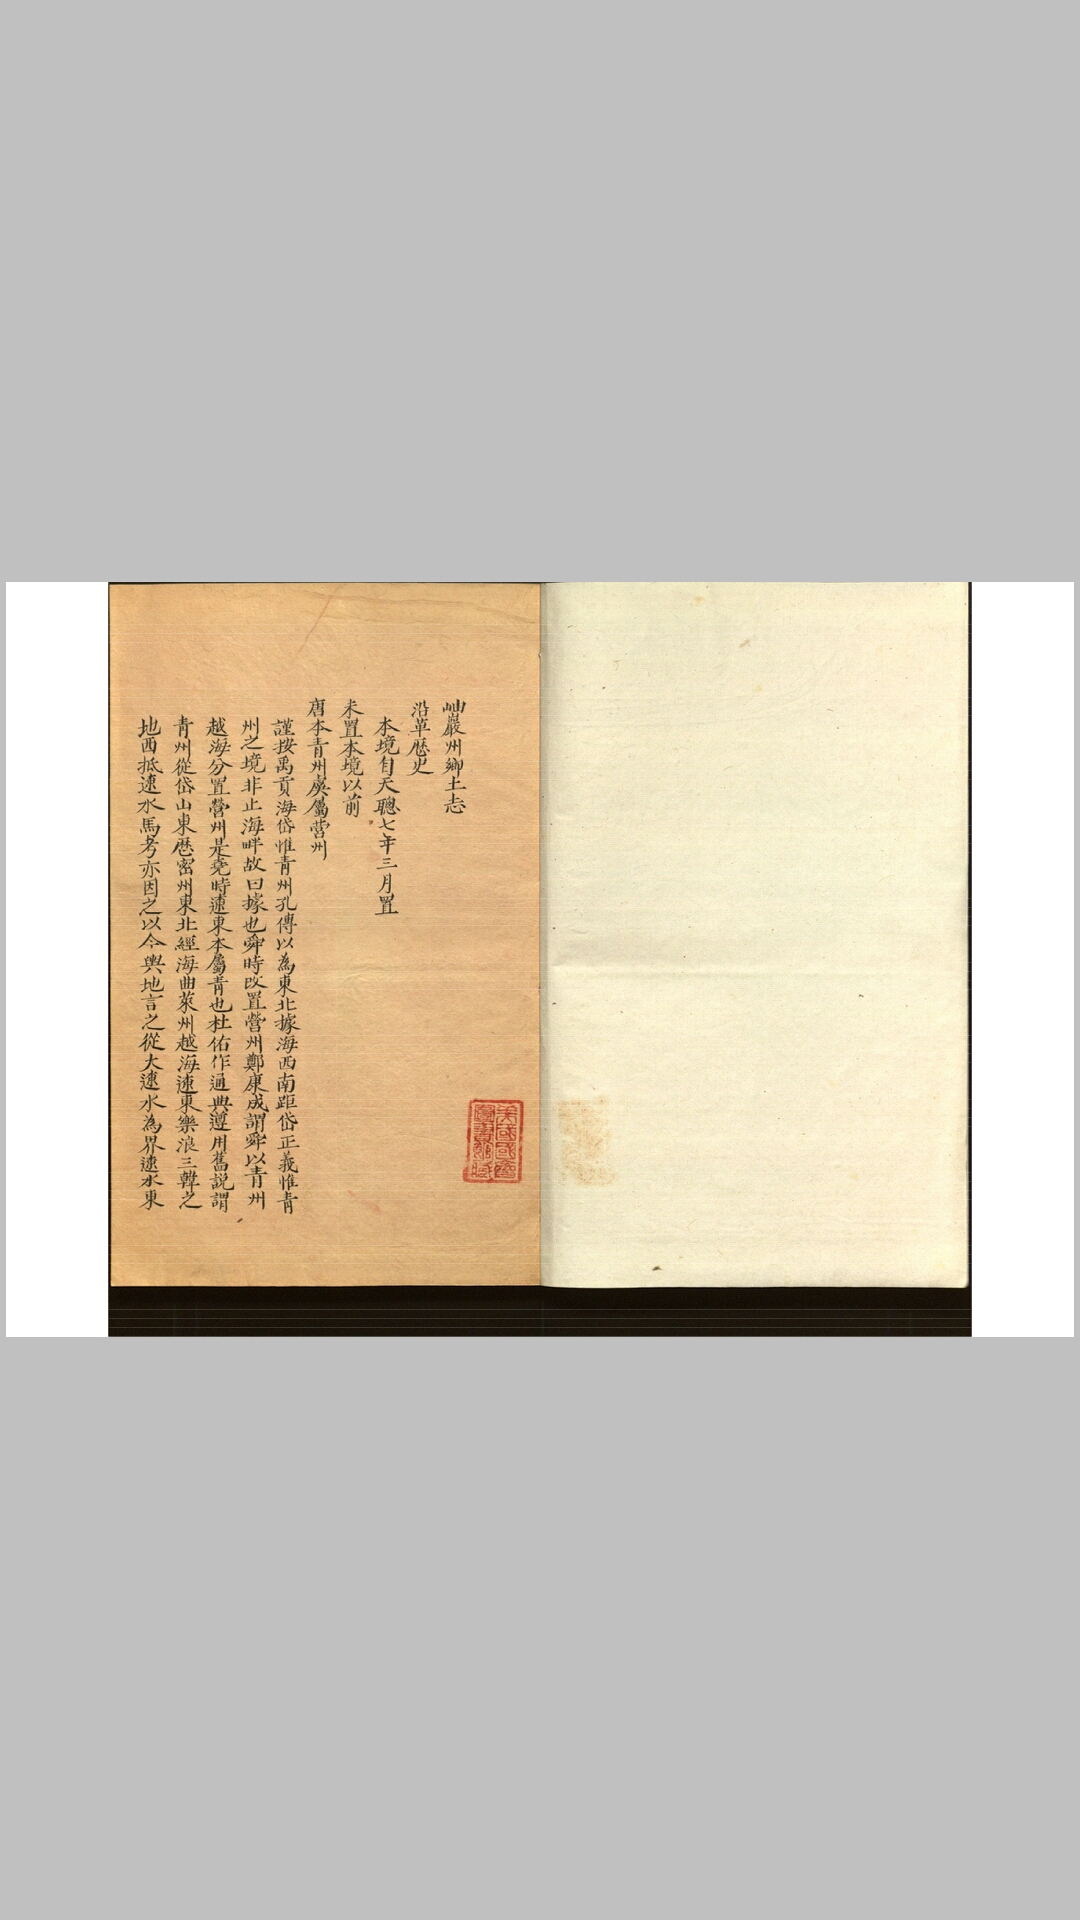 岫巖州鄉土志
沿革歷史
本境自天聰七年三月置
未置本境以前
唐本青州虞屬營州
謹按禹貢海岱惟青州孔傳以為東北據海西南距岱正義惟青
州之境非止海畔故曰據也舜時改置營州鄭康成謂舜以青州
越海分置營州是堯時遼東本屬青也杜佑作通典遵用舊説謂
青州從岱山東歷密州東北經海曲萊州越海遼東樂浪三韓之
地西抵遼水馬考亦因之以今輿地言之從大遼水為界遼水東
美國國會
圖書館藏